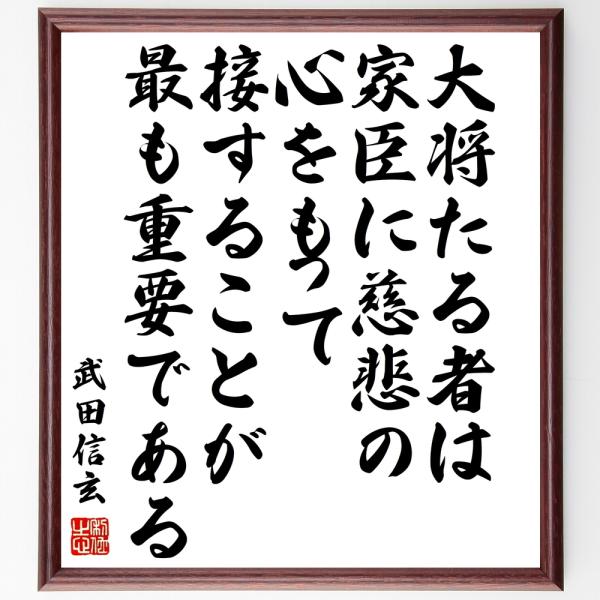 大将たる者は
家臣に慈悲の
心をもって
接することが
最も重要である
武田信玄